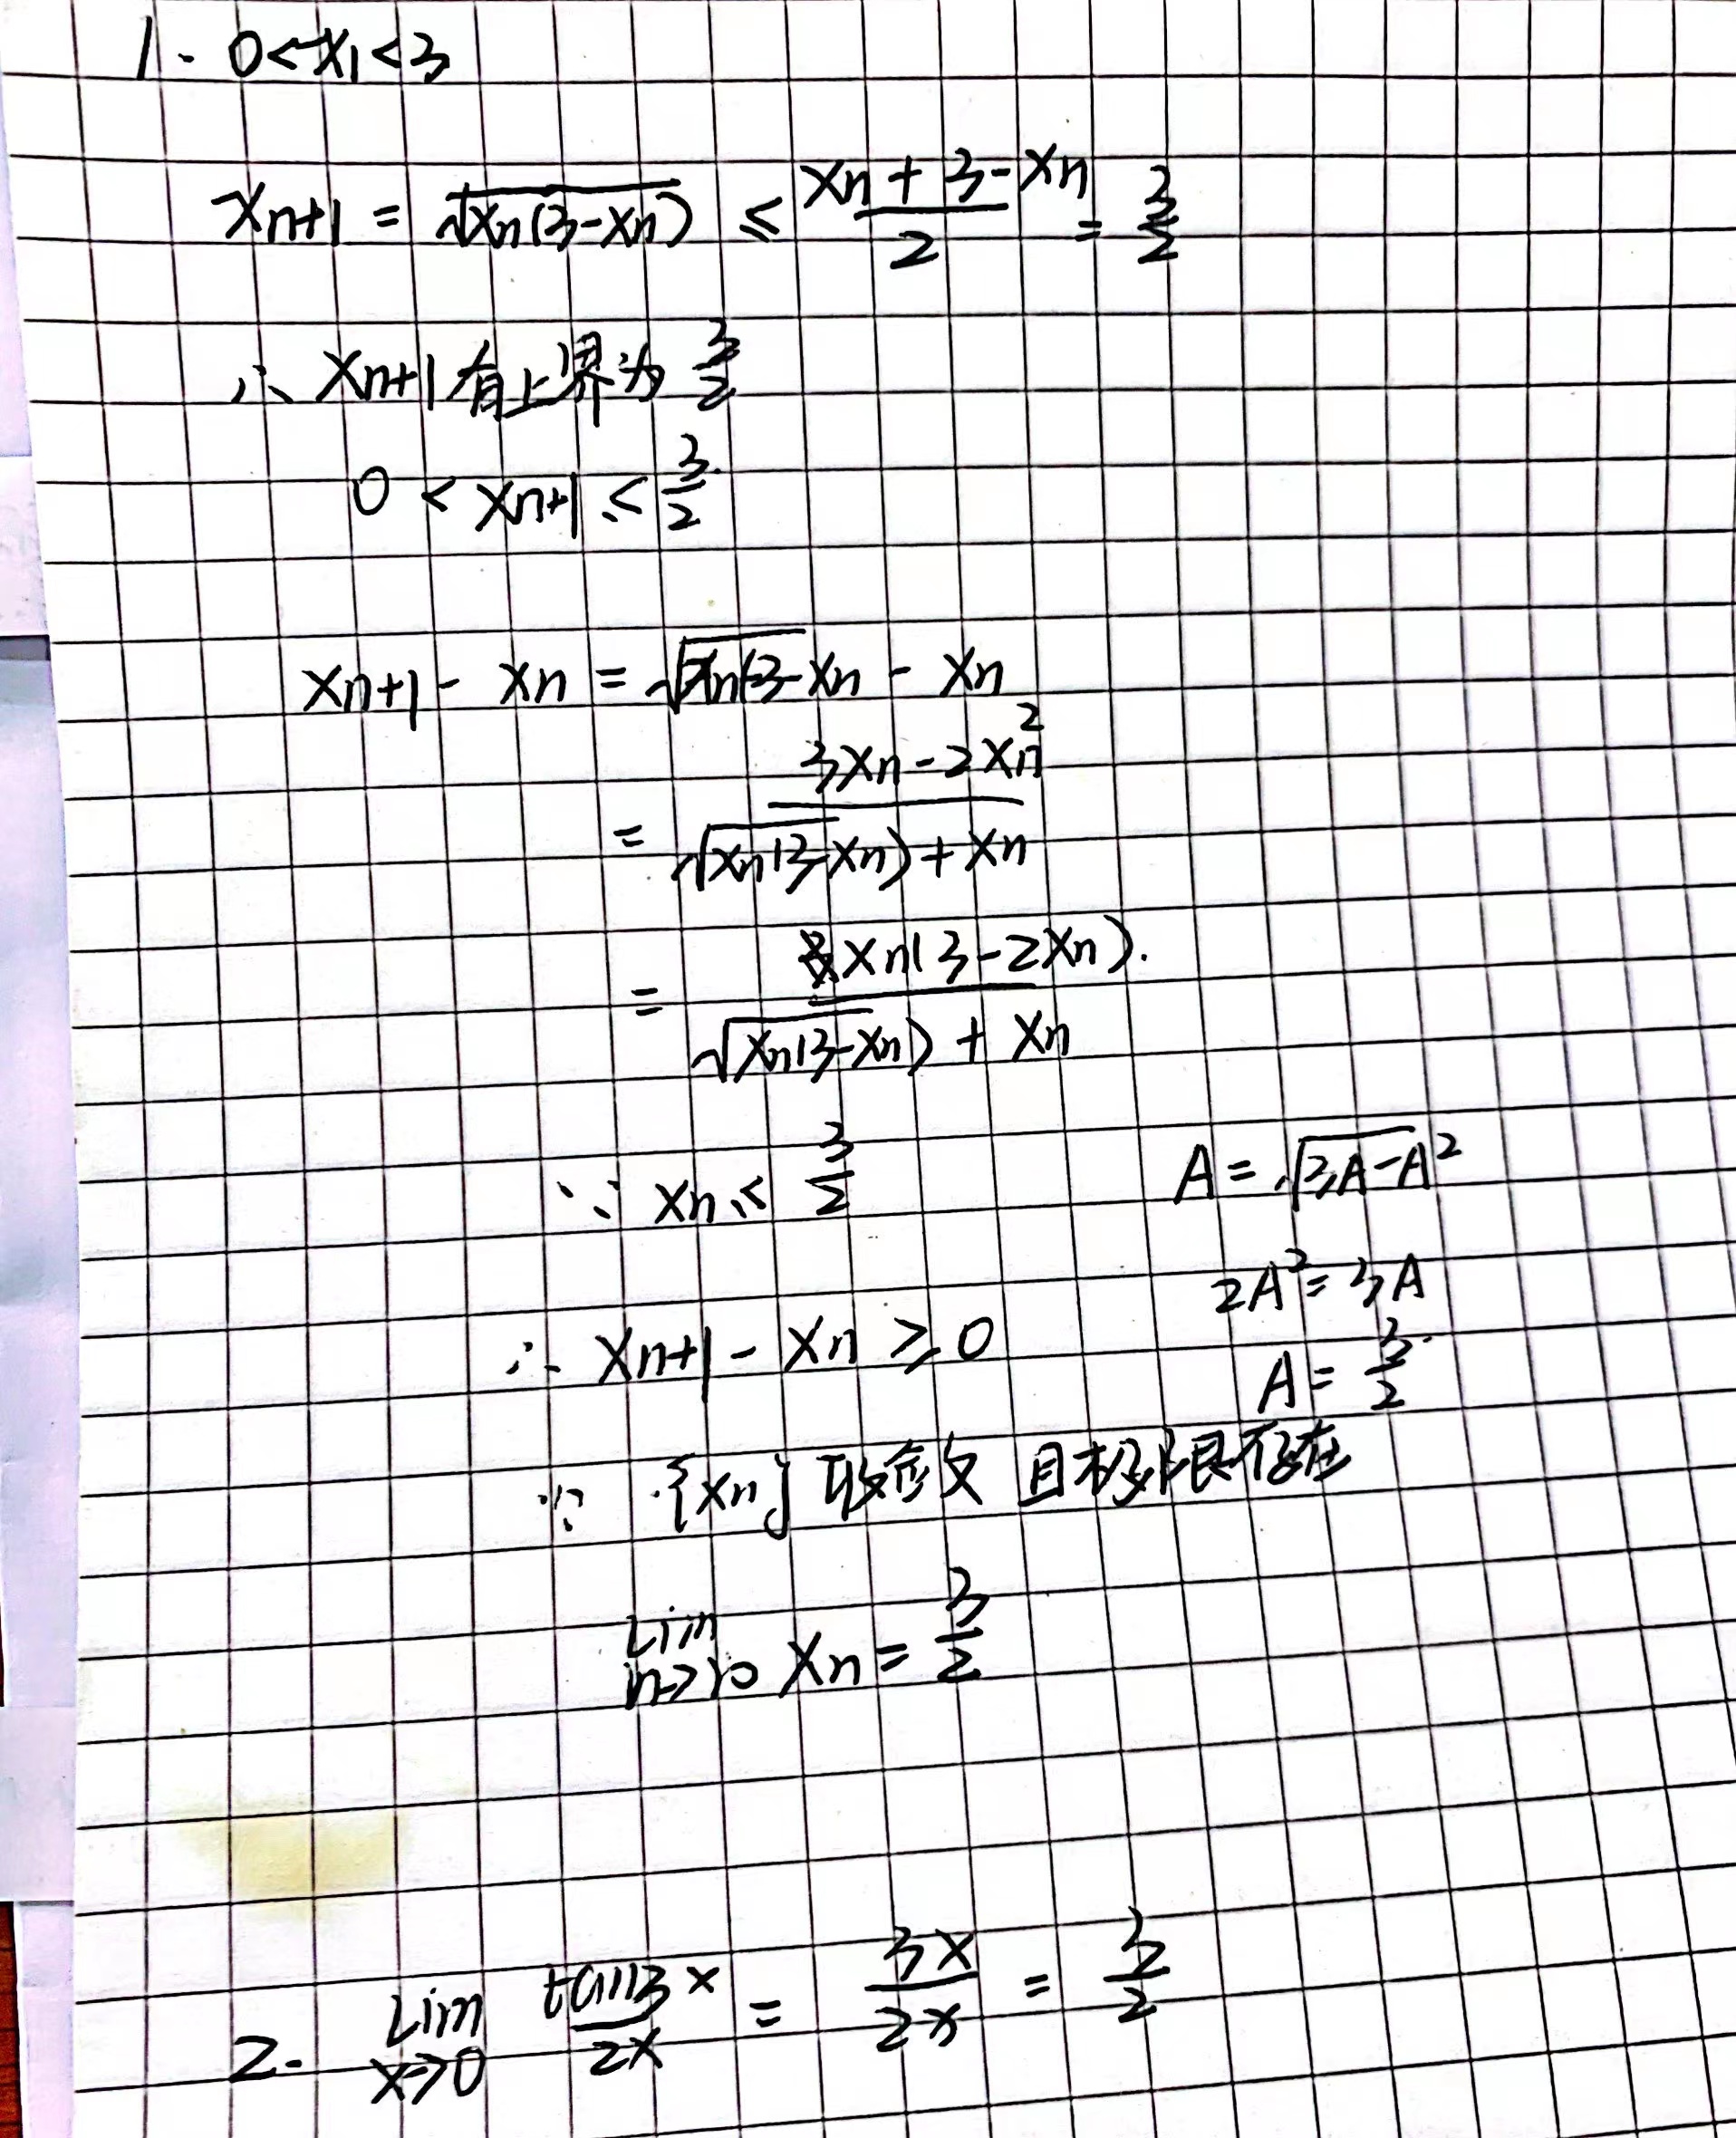 1. 0<x₁<3
xn+1 = √xn(3-xn) ≤ (xn+3-xn)/2 = 3/2
∴ xn+1有上界为 3/2
0 < xn+1 ≤ 3/2
xn+1 - xn = √xn(3-xn - xn
= (3xn-2xn²)/(√xn(3-xn)+xn)
= xn(3-2xn)/(√xn(3-xn)+xn)
∵ xn ≤ 3/2
∴ xn+1 - xn ≥ 0
A = √3A-A²
2A² = 3A
A = 3/2
∵ {xn} 收敛 且极限存在
lim n→∞ xn = 3/2
2. lim x→0 tan3x/2x = 3x/2x = 3/2